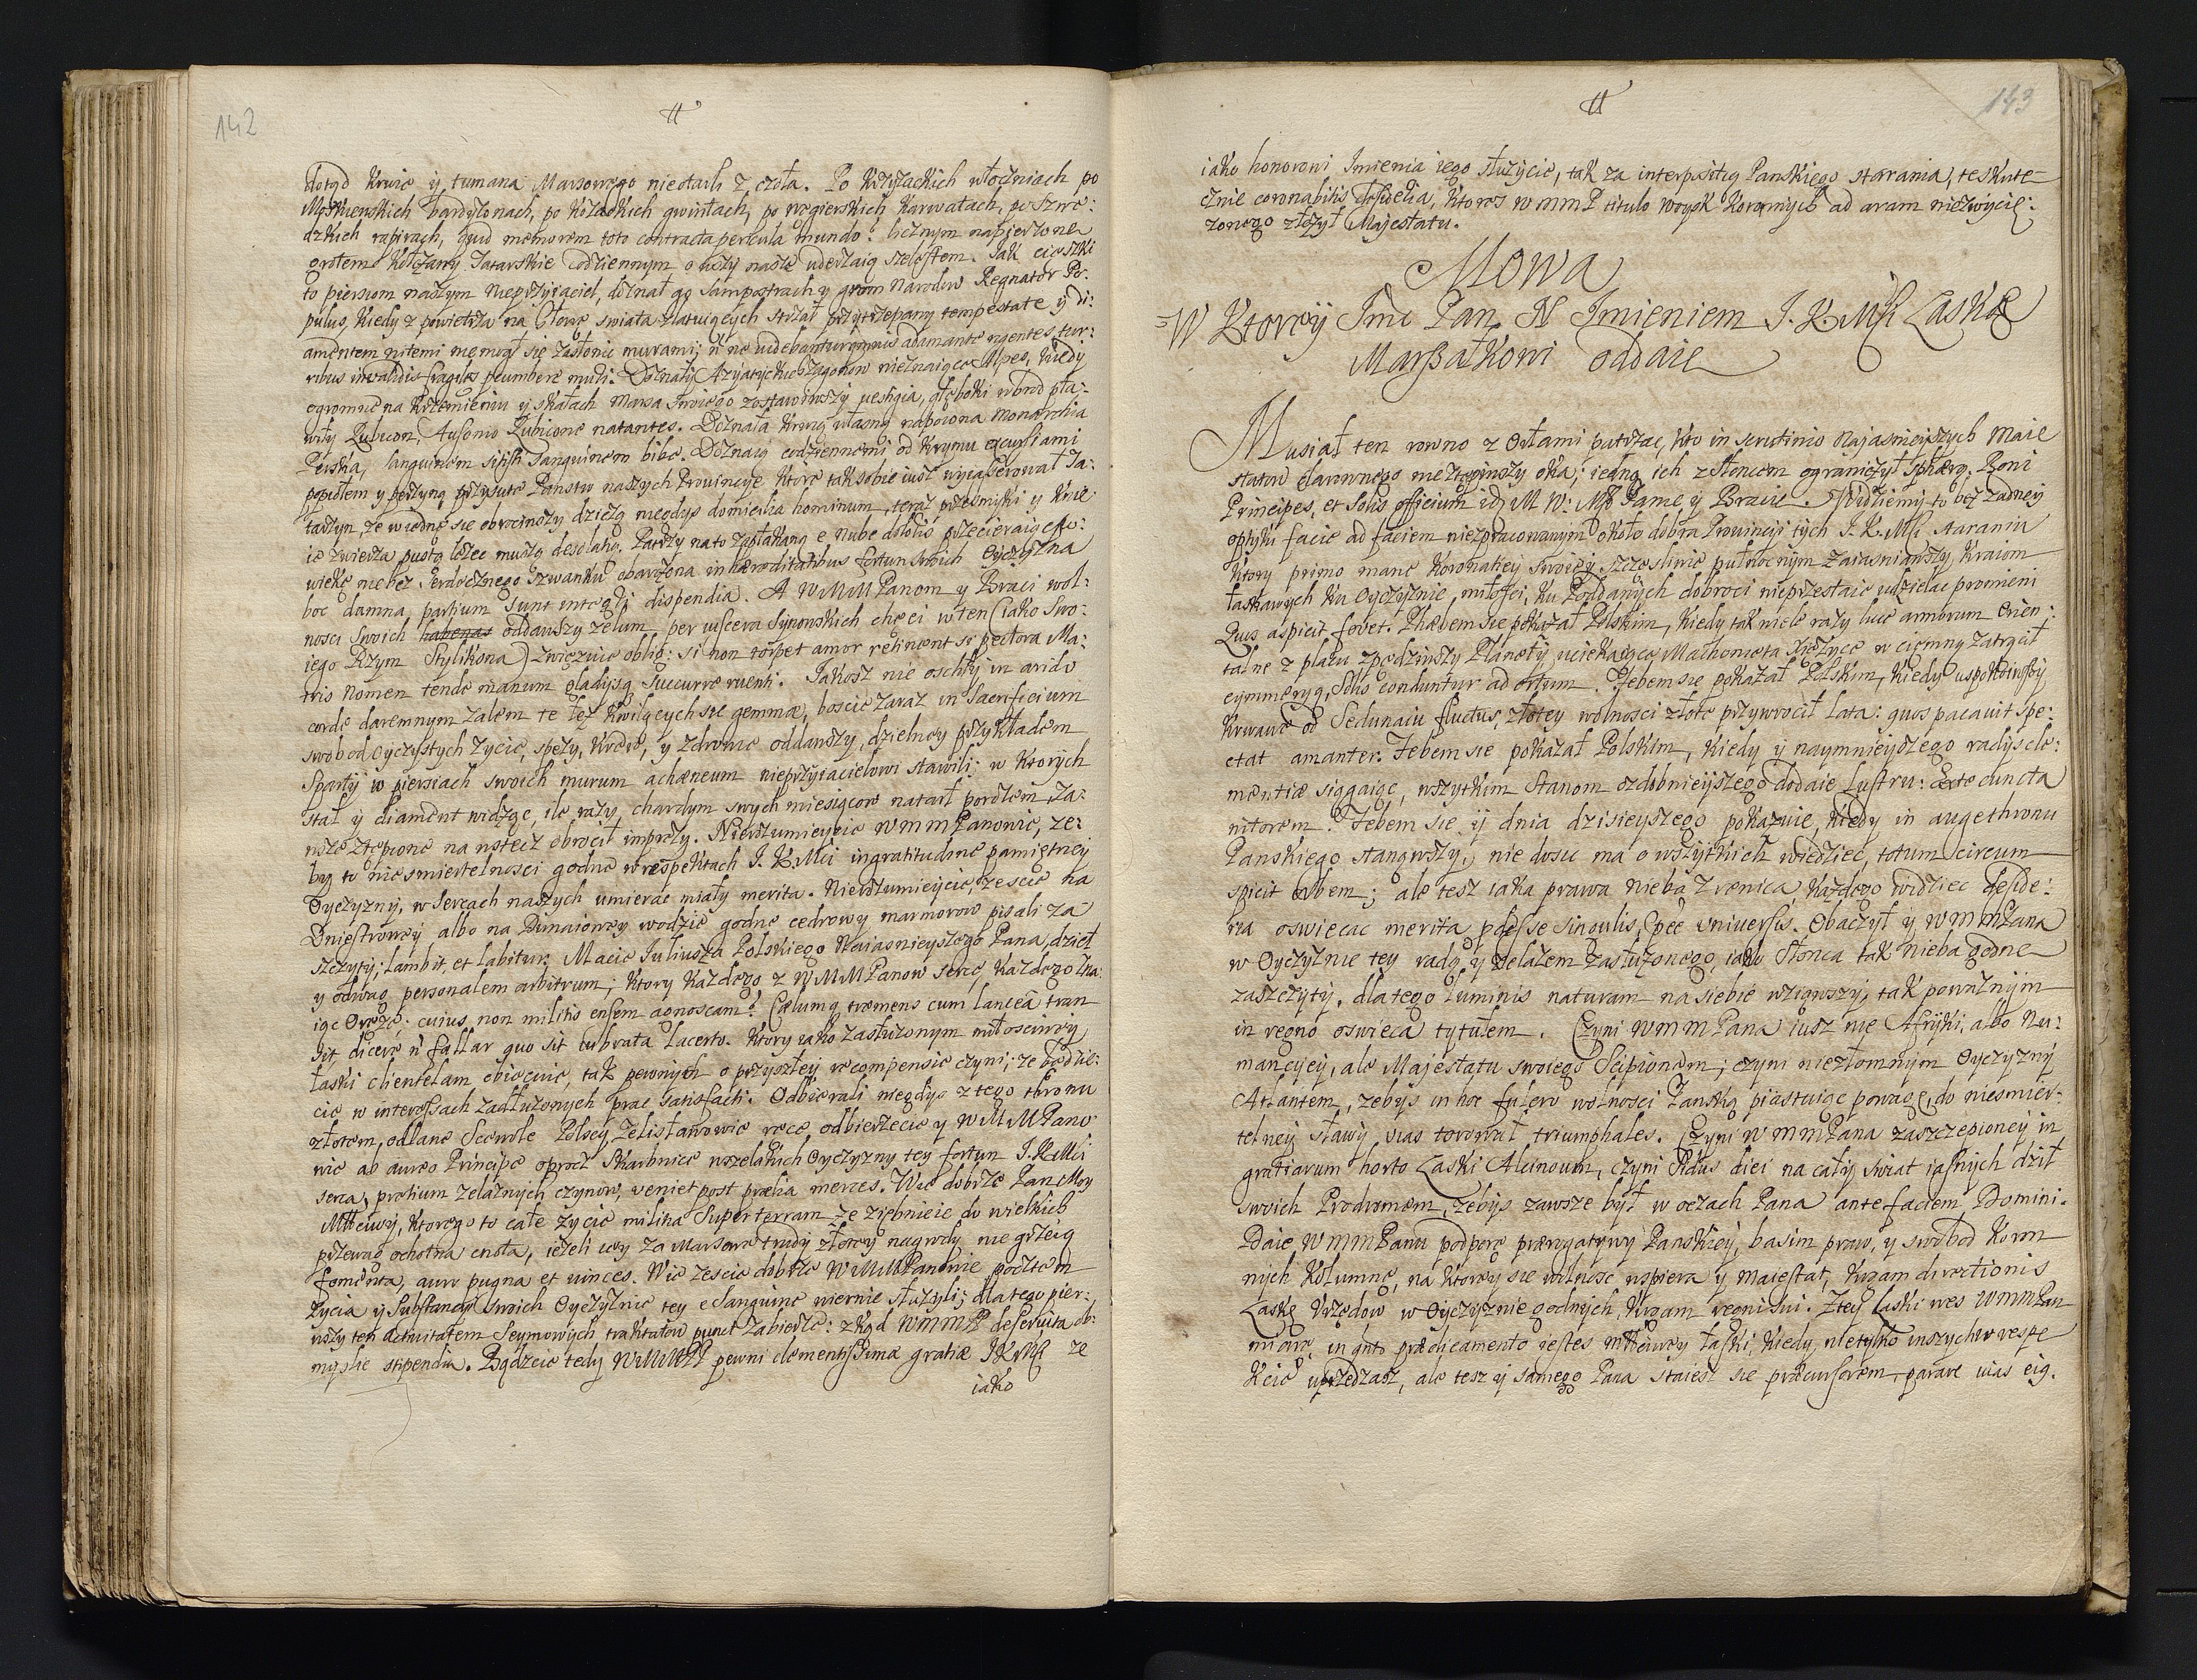 142
dotąd krwie y tumana Marsowego nieotarli z czoła. Po krzyzackich włoczniach po
Moskiewskich bardyzonach, po kozackich gwintach, po węgierskich karwatach, po szwe:
dzkich rapirach, quid memorem toto contracta pericula mundo? licznym napierzone
grotem kołczany Tatarskie codziennym o uszy nasze uderzaią szelestem. Jak cięszki
to piersiom naszym nieprzyiaciel, doznał go w postrach y grom Narodow Regnator Po:
pulus, kiedy z powietrza na Głowę swiata zlatuiących strzał przytrzepany tempestate y di:
amentem nitemi niemogł się zasłonic murami; adamante rigentes tur:
ribus invalidis fragiles procumbere muri. Doznały Azyatyckich zagonow nieznaiące Alpes, kiedy
ogromne na krzemieniu y skałach Marsa swoiego zostawiwszy vestigia, głęboki w brod pła:
wiły Rubicon, Ausonio Rubicone natantes. Doznała krwią własną napoiona Monarchia
Perska, sanguinem sitisti sanguinem bibe. Doznaią codziennemi od Krymu excursiami
popiołem y perzyną przysute Panstw naszych Prowincye ktore tak sobie iusz wycasserował Ta:
tarzyn, ze w iednę się obrociwszy dziczą niegdys domicilia hominum, teraz przesmyki y knie
ie zwierza pustą lezec muszą desolatią. Patrzy na to zapłakaną e nube doloris przecieraiąc po:
wiekę nie bez serdecznego szwanku obarczona in haereditatibus fortun swoich Oyczyzna
hoc damna, partium sunt integri dispendia. A WMMPanom y Braci wol:
nosci swoich habenas oddawszy zelum per viscera Synowskich chęci w ten (iako swo:
iego Rzym Stylikona) zwięzuie oblig: si non torpet amor retinent si pectora Ma:
tris nomen tende manum gladijsq succurre ruenti. Jakosz nie oschły in arido
corde daremnym zalem te łez kwilących się gemmae, boscie zaraz in sacrificium
swobod oyczystych zycie, spezy, krew, y zdrowie oddawszy, dzielney przykładem
Sparty w piersiach swoich murum achaeneum nieprzyiacielowi stawili; w ktorych
stał y diament widząc, ile razy, chardym swych miesiącow natarł porozem, za:
wsze ztępione na wstecz obrocił imprezy. Nierozumieycie WMMPanowie, ze:
by te niesmiertelnosci godne w respektach J.K.Mci ingratitudine pamiętney
Oyczyzny, w sercach naszych umierac miały merita. Nierozumieycie, zescie na
Dniestrowey albo na Dunaiowey wodzie godne cedrowy marmorow pisali za
szczyty; lambit, et labitur. Macie Iuliusza Polskiego Naiasnieyszego Pana, dzieł
y odwag personalem arbitrum, ktory kazdego z WMMPanow serce, kazdego zna:
iąc Oręze; cuius non militis ensem agnoscam? Caelumq tremens cum lancea tran
sit dicere n̄ fallar quo sit vibrata lacerto. Ktory iako zasłuzonym miłosciwey
łaski clientelam obiecuie, tak pewnych o przyszłey recompensie czyni; ze będzie:
cie w interessach zadłuzonych prac satisfacti. Odbierali niegdys z tego thronu
złotem, odlane Scewole Polscy, Zelisławowie ręce odbierzecie y WMMPano
wie ab aureo Principe oprocz skarbnice wszelakich Oyczyzny tey fortun J.K.Mci
serca, pretium zelaznych czynow, veniet post praelia merces. Wie dobrze Pan Moy
Mściwy, ktorego to całe zycie militia super terram ze ziębnieie do wielkich
przewag ochotna cnota, iezeli iey za Marsowe trudy złotey nagrody nie grzeią
fomenta, auro pugna et vinces. Wie zescie dobrze WMMPanowie pocztem
zycia y substancyi swoich Oyczyznie tey e sanguine wiernie słuzyli; dla tego pier:
wszy ten activitatem Seymowych traktatow punct zabierze: zkąd WMMPP deservita ob:
myslic stipendia. Bądzcie tedy WMMPP pewni clementissima gratiae JKMsci ze
iako
143
iako honorowi Imienia iego słuzycie, tak za interpositią Panskiego starania, teskute:
cznie coronabitis desideria, ktores WMMP titulo woysk Koronnych ad aram niezwycię:
zonego złozył Majestatu.
Mowa
W Ktorey Jmc Pan N Imieniem J.K.Mci Laskę
Marszałkowi oddaie
Musiał ten rowno z Orłami patrzac, kto in scrutinio Najasnieyszych Maie
statow dawnego nieztępiwszy oka; iedną ich z Słoncem ograniczył sphaerą. Boni
Principes, et Solis officium idē MW: Msci Panie y Bracie. Widziemy to bez zadney
optyki facie ad faciem niezpracowanym około dobra Prowincyi tych J.K.Mci staraniu
ktory primo mane Koronatiey swoiey szczęsliwie pułnocnym zaiasniawszy kraiom
łaskawych ku Oyczyznie, miłosci, ku Poddanych dobroci nieprzestaie udzielac promieni
Quos aspicit, fovet. Phaebem się pokazał Polskim, kiedy tak wiele razy luce armorum Orien:
talne z placu zpędziwszy Planety, uciekaiące Machometa Xięzyce w ciemny zatrącił
cymmeryą, Solis conduntur ad ortum. Febem się pokazał Polskim, kiedy uspokoiwszy
krwawe od Sedunaiu fluctus, złotey wolnosci złote przywrocił lata: quos pacavit spe:
ctat amanter. Febem się pokazał Polskim, kiedy y naymnieyszego radijs cle:
mentiae sięgaiąc, wszytkim Stanom ozdobnieyszego dodaie lustru: certe cuncta
nitorem. Febem się y dnia dzisieyszego pokazuie, kiedy in auge thronu
Panskiego stanąwszy, nie dosic ma o wszytkich wiedziec, totum circum
spicit orbem; ale tesz iaka prawa nieba zrenica, kazdego widziec deside:
ria oswiecac merita pdesse singulis, spēc universis. Obaczył y WMMPana
w Oyczyznie tey radą y zelazem zasłuzonego, iako Słonca tak nieba godne
zaszczyty, dlatego luminis naturam na siebie wziąwszy, tak powaznym
in regno oswieca tytułem. Czyni WMMPana iusz nie Afryki, albo Nu:
mancyey, ale Majestatu swoiego Scipionem; czyni niezłomnym Oyczyzny
Atlantem, zebys in hoc fulcro wolnosci Panską piastuiąc powagę, do niesmier:
telney sławy vias torował triumphales. Czyni WMMPana zaszczepioney in
gratiarum horto Laski Alcinoum, czyni Sidus diei na cały swiat iasnych dził
swoich Prodromem, zebys zawsze był w oczach Pana ante faciem Domini.
Daie WMMPanu podporę praerogatywy Panskiey, basim praw, y swobod Koron
nych Kolumnę, na ktorey się wolnosc wspiera y Maiestat, virgam directionis
Laskę Urzędow w Oyczyznie godnych, virgam regni sui. Z tey laski wes WMMPan
miarę, in qnto praedicamento iestes Mściwey łaski, kiedy nietylko inszych w respe
kcie uprzedzasz, ale tesz y samego Pana staiesz się praecursorem, parare vias eig.